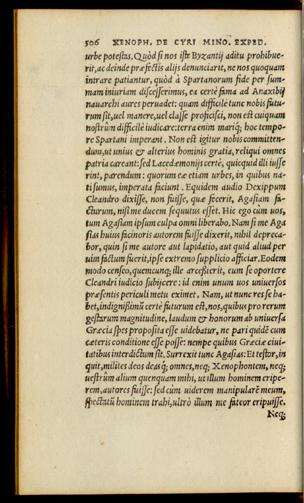 506 XENOPH. DE CYRI MINO. EXPED.
urbe potestas. Quòd si nos iste Byzantij aditu prohibue-
rit, ac deinde præfectis alijs denunciarit, ne nos quoquam
intrare patiantur, quòd à Spartanorum fide per sum-
mam iniuriam discesserimus, ea certè fama ad Anaxibij
nauarchi aures peruadet: quam difficilè tunc nobis futu-
rum sit, uel manere, uel classe proficisci, non est cuiquam
nostrûm difficilè iudicare: terra enim mariq́; hoc tempo-
re Spartani imperant. Non est igitur nobis committen-
dum, ut unius & alterius hominis gratia, reliqui omnes
patria careant: sed Lacedæmonijs certè, quicquid illi iusse
rint, parendum: quorum eæ etiam urbes, in quibus na-
ti sumus, imperata faciunt. Equidem audio Dexippum
Cleandro dixisse, non fuisse, quæ fecerit, Agasiam fa-
cturum, nisi me ducem sequutus esset. Hic ego cùm uos,
tum Agasiam ipsum culpa omni liberabo. Nam si me Aga
sias huius facinoris autorem fuisse dixerit, nihil depreca-
bor, quin si me autore aut lapidatio, aut quid aliud per
uim factum fuerit, ipse extremo supplicio afficiar. Eodem
modo censeo, quemcunq; ille arcessierit, eum se oportere
Cleandri iudicio subijcere: id enim unum uos uniuersos
præsentis periculi metu eximet. Nam, ut nunc res se ha-
bet, indignißimũ certè futurum est, nos, quibus pro rerum
gestarum magnitudine, laudum & honorum ab uniuersa
Græcia spes proposita esse uidebatur, ne pari quidẽ cum
cæteris conditione esse posse: nempe quibus Græciæ ciui-
tatibus interdictum sit. Surrexit tunc Agasias: Et testor, in
quit, milites deos deasq́; omnes, neq; Xenophontem, neq;
uestrûm alium quenquam mihi, ut illum hominem eripe-
rem, autores fuisse: sed cùm uiderem manipularẽ meum,
spectatũ hominem trahi, ultrò illum me fateor eripuisse.
Neq;